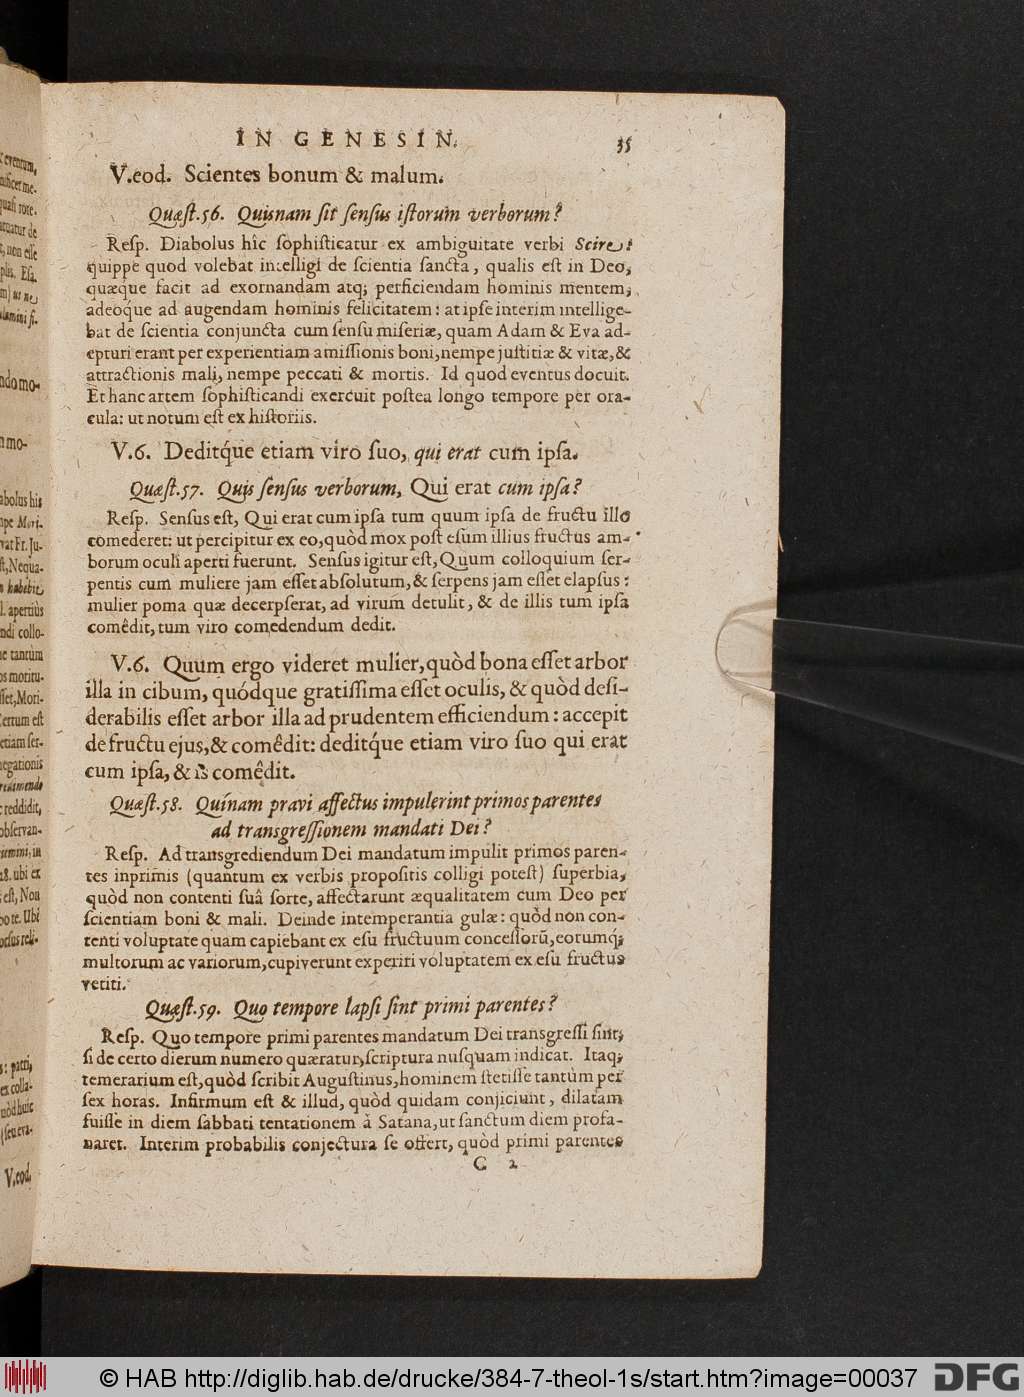 IN GENESIN. 35
V.eod. Scientes bonum & malum.
Quæst.56. Quisnam sit sensus istorum verborum?
Resp. Diabolus hîc sophisticatur ex ambiguitate verbi Scire:
quippe quod volebat intelligi de scientia sancta, qualis est in Deo,
quæque facit ad exornandam atq; perficiendam hominis mentem,
adeóque ad augendam hominis felicitatem: at ipse interim intellige-
bat de scientia conjuncta cum sensu miseriæ, quam Adam & Eva ad-
epturi erant per experientiam amissionis boni, nempe justitiæ & vitæ, &
attractionis mali, nempe peccati & mortis. Id quod eventus docuit.
Et hanc artem sophisticandi exercuit postea longo tempore per ora-
cula: ut notum est ex historiis.
V.6. Deditq́ue etiam viro suo, qui erat cum ipsa.
Quæst.57. Quis sensus verborum, Qui erat cum ipsa?
Resp. Sensus est, Qui erat cum ipsa tum quum ipsa de fructu illo
comederet: ut percipitur ex eo, quòd mox post esum illius fructus am-
borum oculi aperti fuerunt. Sensus igitur est, Quum colloquium ser-
pentis cum muliere jam esset absolutum, & serpens jam esset elapsus:
mulier poma quæ decerpserat, ad virum detulit, & de illis tum ipsa
comêdit, tum viro comedendum dedit.
V.6. Quum ergo videret mulier, quòd bona esset arbor
illa in cibum, quódque gratissima esset oculis, & quòd desi-
derabilis esset arbor illa ad prudentem efficiendum: accepit
de fructu ejus, & comêdit: deditq́ue etiam viro suo qui erat
cum ipsa, & is comêdit.
Quæst.58. Quínam pravi affectus impulerint primos parentes
ad transgressionem mandati Dei?
Resp. Ad transgrediendum Dei mandatum impulit primos paren-
tes inprimis (quantum ex verbis propositis colligi potest) superbia,
quòd non contenti suâ sorte, affectarunt æqualitatem cum Deo per
scientiam boni & mali. Deinde intemperantia gulæ: quòd non con-
tenti voluptate quam capiebant ex esu fructuum concessorũ, eorumq;
multorum ac variorum, cupiverunt experiri voluptatem ex esu fructus
vetiti.
Quæst.59. Quo tempore lapsi sint primi parentes?
Resp. Quo tempore primi parentes mandatum Dei transgressi sint,
si de certo dierum numero quæratur, scriptura nusquam indicat. Itaq;
temerarium est, quòd scribit Augustinus, hominem stetisse tantùm per
sex horas. Infirmum est & illud, quòd quidam conjiciunt, dilatam
fuisse in diem sabbati tentationem à Satana, ut sanctum diem profa-
naret. Interim probabilis conjectura se offert, quòd primi parentes
C 2
© HAB http://diglib.hab.de/drucke/384-7-theol-1s/start.htm?image=00037
DFG